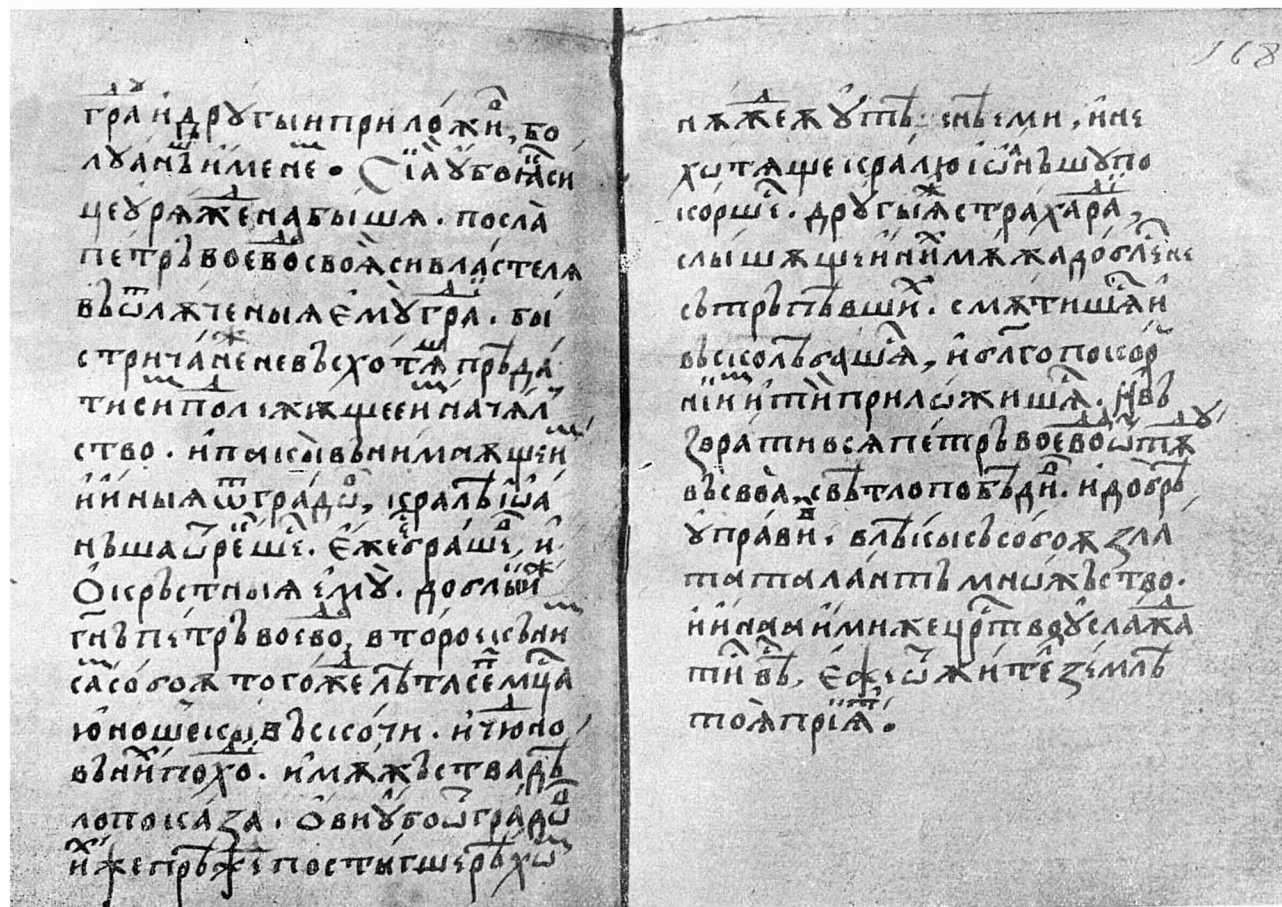 гра̑ и дрꙋгыи приложи, бо
лѹанъ имене. Сїа ꙋбо ѩси
це ꙋрѧжена бышѧ. посла
петръ воево своѧ си властелѧ
въ ѿлѫченыѧ емꙋ гра. бы
стричане не въсхотѧ прѣда
ти си по лежѫщее и начѧл
ство. и пакы вънимаѫщеи
и иныѧ ѿ градѡ, кралѣ іѡа
нъша ѡбрѣше. еже браше, и
ѡкръстныѧ емꙋ. доблыи
гнъ петръ воево, второе къни
са собоѫ того же лѣта семца
юношескы въскочи. и чюно
въ ни похо. и мѫжъства дѣ
ло показа. Ови ꙋбо ѿ градѡ
иже прѣже постыгше рѣхѡ
нѫжеѫ ꙋтѣ снѣми, и не
хотѧще кралю іѡанъшꙋ по
корше. дрꙋгыѧ страхара,
слышѫще и ни мѫжа доблене
сътръпѣвши. смѧтишѧ и
въсколѣбашѧ, и блгопокор
нїи ити приложишѧ. и въ
зврати всѧ петръ воево ѿтѫ
въ своа, свѣтло побѣди. и добрѣ
ꙋправи. влѣкы съ собоѫ зла
та таланть мнѡжьство.
и инаа ими же цртво ꙋслажа
ти вѣ, еже ѿ жителе землѣ
тоѧ прїѧ.